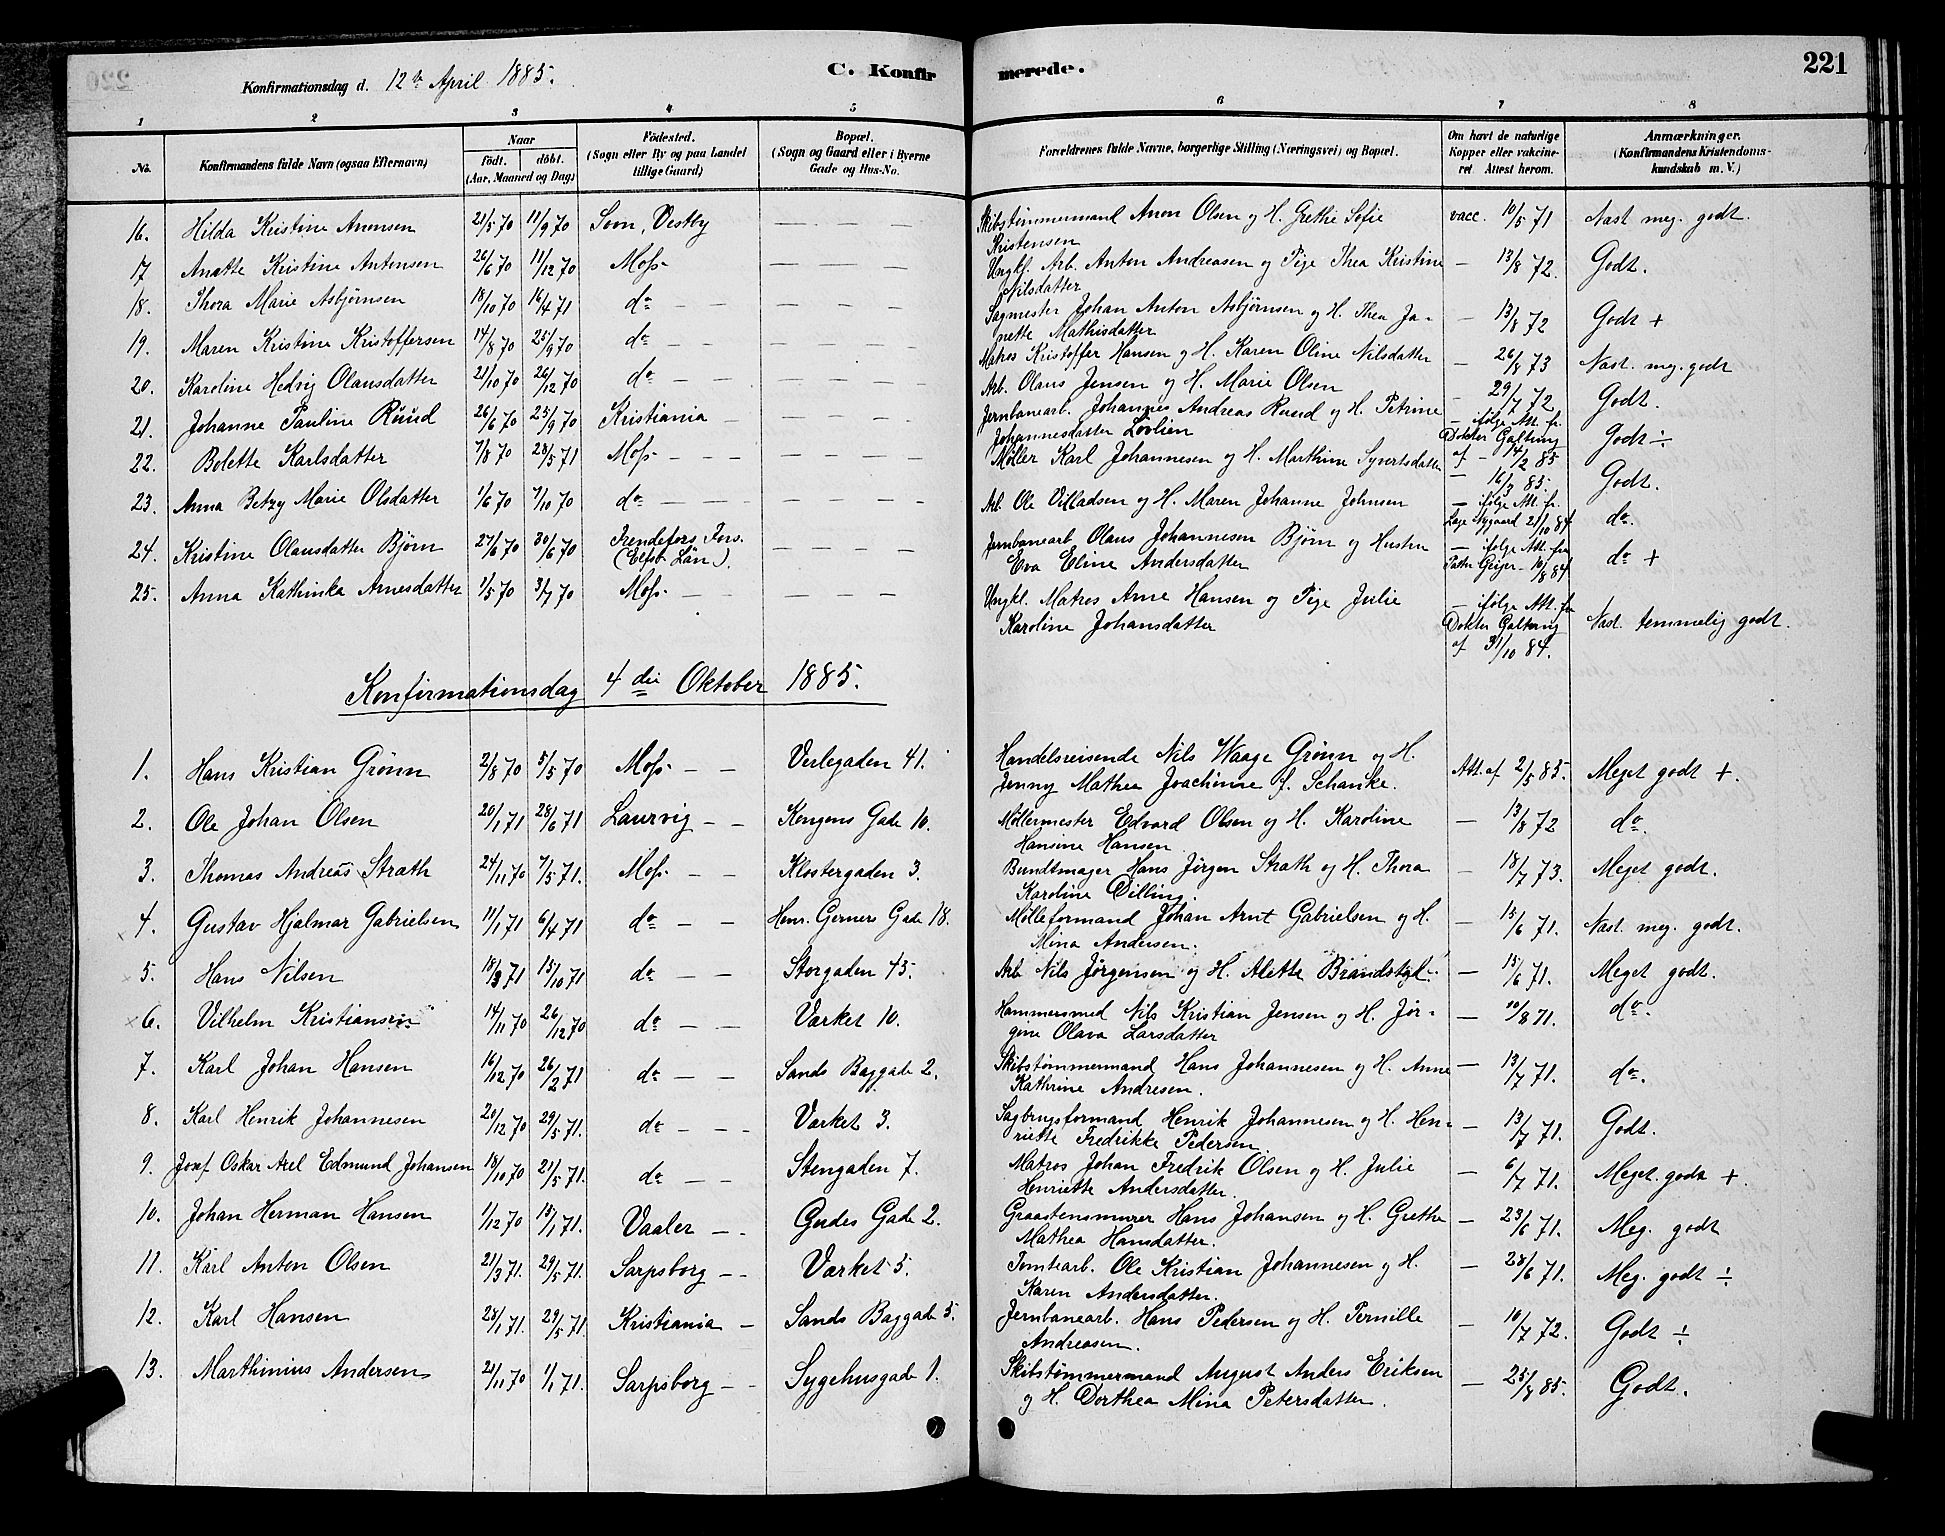 221
Konfirmationsdag d. 12te April 1885.
C. Konfirmerede.
1 2 3 4 5 6 7 8
No.
Konfirmandens fulde Navn (ogsaa Efternavn)
Naar
født. døbt.
(Aar, Maaned og Dag)
Födested.
(Sogn eller By og paa Landet
tillige Gaard)
Bopæl.
(Sogn og Gaard eller i Byerne
Gade og Hus-No.
Forældrenes fulde Navne, borgerlige Stilling (Næringsvei) og Bopæl.
Om havt de naturlige
Kopper eller vakcine-
ret Attest herom.
Anmærkninger.
(Konfirmandens Kristendoms-
kundskab m. V.)
16. Hilda Kristine Anonsen 21/5 70 11/9 70 Soon, Vestby — — — Skibstømmermand Anon Olsen og H. Grethe Sofie vacc. 10/5 71 Næst meg. godt.
Kristensen
17 Anette Kristine Antonsen 26/6 70 11/12 70 Moss — — — Ungkl. Arb. Anton Andreasen og Pige Thea Kristine — 13/8 72. Godt.
Nilsdatter
18. Thora Marie Asbjørnsen 18/10 70 16/4 71 do — — — — — Sagmester Johan Anton Asbjørnsen og H. Thea Ja- — 13/8 72 Godt +
nette Mathisdatter
19. Maren Kristine Kristoffersen 14/8 70 25/9 70 do — — — — — Matros Kristoffer Hansen og H. Karen Oline Nilsdatter — 26/8 73 Næst. meg. godt
20. Karoline Hedvig Olausdatter 21/10 70 26/12 70 do — — — — — Arb. Olaus Jensen og H. Marie Olsen — 29/7 72 Godt.
21. Johanne Pauline Ruud 26/6 70 25/9 70 Kristiania — — — — Jernbanearb. Johannes Andreas Ruud og H. Petrine — ifølge Att. fr.
Johannesdatter Løvlien Dokter Galtung Godt ÷
af — 14/2 85
22. Bolette Karlsdatter 7/8 70 28/5 71 Moss — — — — — — Møller Karl Johannesen og H. Marthine Syvertsdatter — 16/3 85. Godt.
23. Anna Betzy Marie Olsdatter 1/6 70 7/10 70 do — — — — — Arb. Ole Villadsen og H. Maren Johanne Johnsen — ifølge Att. fr.
Læge Nygaard 21/10 84. do.
24. Kristine Olausdatter Bjørn 27/6 70 30/6 70 Frendefors, Fors. — — — — Jernbanearb Olaus Johannesen Bjørn og Hustru — ifølge Att. fra
(Elfsb. Län). Eva Eline Andersdatter 10/8 84 do +
25. Anna Kathinka Arnesdatter 1/5 70 3/7 70 Moss — — — — Ungkl. Matros Arne Hansen og Pige Julie — ifølge Att. fra
Karoline Johansdatter Dokter Galtung Næst. temmelig godt.
af 31/10 84.
Konfirmationsdag 4de Oktober 1885.
1. Hans Kristian Grønn 2/8 70 5/5 70 Moss — — Verlegaden 41. Handelsreisende Nils Waage Grønn og H. Att. af 2/5 85. Meget godt +.
Jenny Mathea Joachime f. Schanke.
2. Ole Johan Olsen 20/1 71 28/6 71 Laurvig — — Kongens Gade 10. Møllermester Edvard Olsen og H. Karoline — 13/8 72 do.
Hansine Hansen
3. Thomas Andreas Strath 24/11 70 7/5 71. Moss — — Klostergaden 3. Bundtmager Hans Jørgen Strath og H. Thora — 18/7 73. Meget godt.
Karoline Dilling.
4. Gustav Hjalmar Gabrielsen 11/1 71 6/4 71 do — — Henr. Gerners Gade 18. Mølleformand Johan Arnt Gabrielsen og H. — 15/6 71. Næst. meg. godt.
Mina Andersen.
× 5. Hans Nilsen 18/3 71 15/10 71 do — — Storgaden 45. Arb Nils Jørgensen og H. Alette Brandstad. — 15/6 71. Meget godt.
× 6. Vilhelm Kristiansen 14/11 70 26/12 70 do — — Værket 10. Hammersmed Nils Kristian Jensen og H. Jør- — 10/8 71. do.
gine Olava Larsdatter
7. Karl Johan Hansen 16/12 70 26/2 71 do — — Sands Baggade 2. Skibstømmermand Hans Johannesen og H. Anne — 13/7 71. do.
Kathrine Andresen.
8. Karl Henrik Johannesen 20/12 70 29/5 71. do — — — Værket 3. Sagbrugsformand Henrik Johannesen og H. Hen- — 13/7 71. Godt.
riette Fredrikke Pedersen
9. Josef Oskar Axel Edmund Johansen 18/10 70 21/5 71. do — — Stengaden 7. Matros Johan Fredrik Olsen og H. Julie — 6/7 71. Meget godt +.
Henriette Andersdatter.
10. Johan Herman Hansen 1/12 70 15/1 71. Vaaler — — Gudes Gade 2. Graastensmurer Hans Johansen og H. Grethe — 23/6 71. Meg. godt
Mathea Hansdatter.
11. Karl Anton Olsen 21/3 71. 29/5 71. Sarpsborg — — Værket 5. Tomtearb. Ole Kristian Johannesen og H. — 28/6 71. Meg. godt ÷
Karen Andersdatter.
12. Karl Hansen 28/1 71. 29/5 71 Kristiania — Sands Baggade 5. Jernbanearb. Hans Pedersen og H. Pernille — 10/7 72. Godt ÷
Andreasen.
13. Marthinius Andersen 21/11 70 1/1 71. Sarpsborg — — Sygehusgade 1. Skibstømmermand August Anders Eriksen — 25/8 85. Godt.
og H. Dorthea Mina Petersdatter.